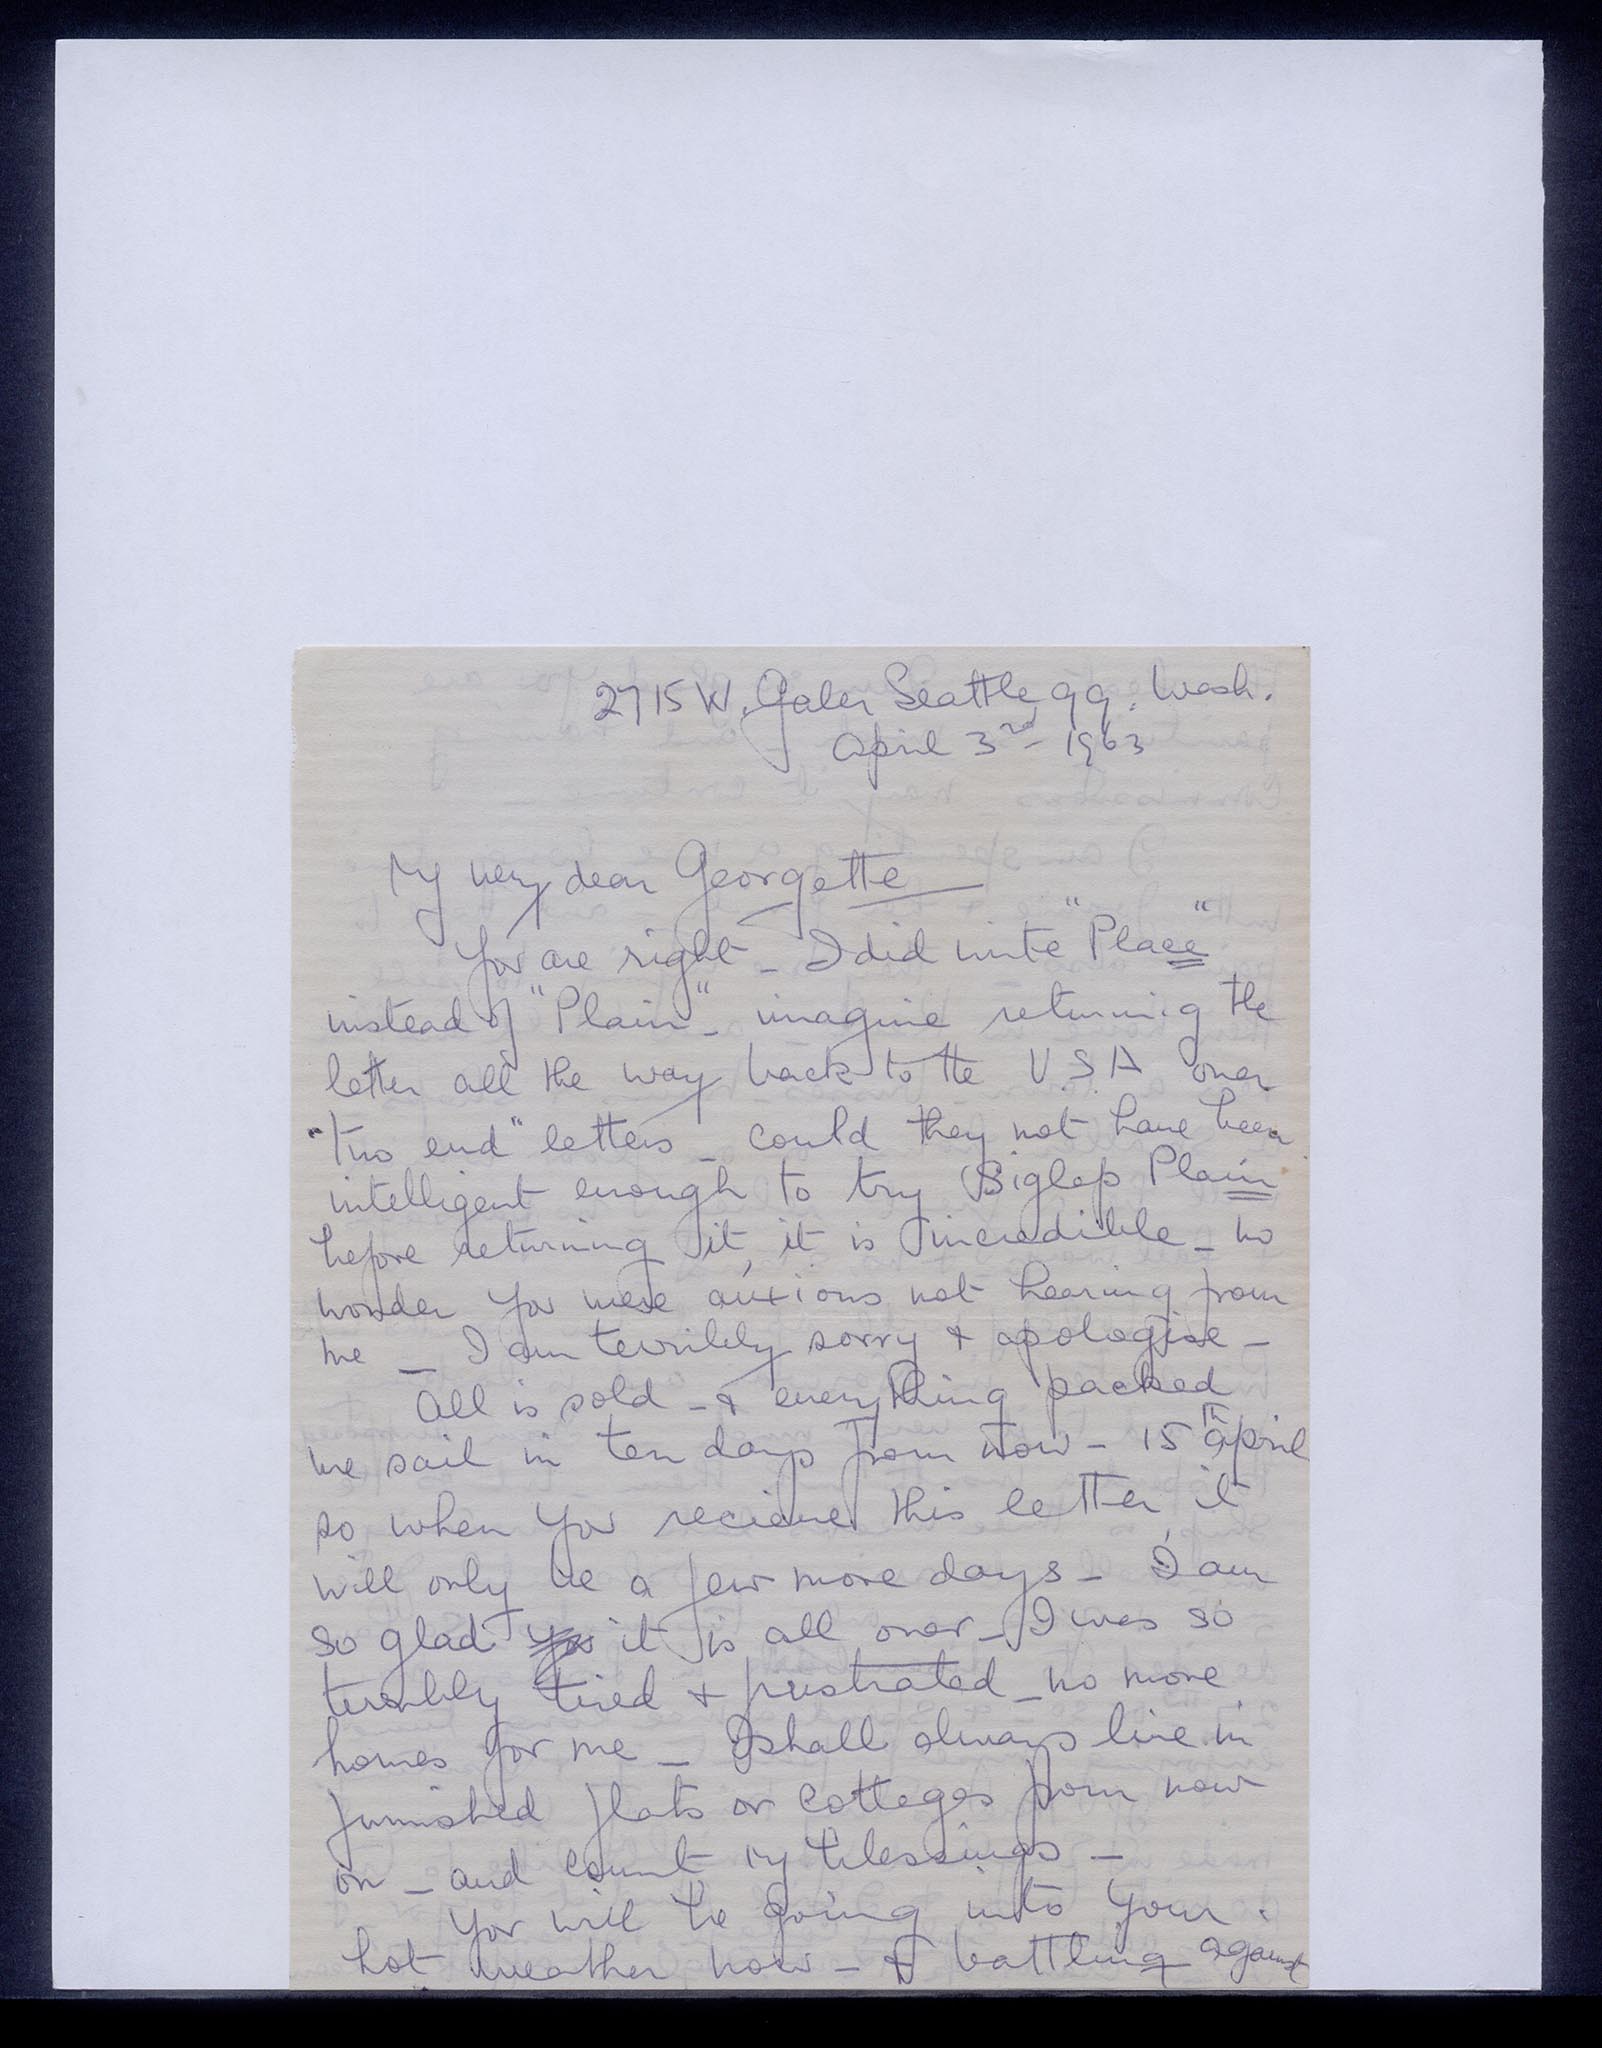 2715 W. Galer Seattle 99. Wash.
April 3rd - 1963
My very dear Georgette
You are right - I did write "Place"
instead of "Plain" - imagine returning the
letter all the way back to the U.S.A over
"two end" letters - could they not have been
intelligent enough to try Siglap Plain
before returning it, it is incredible - no
wonder you were anxious not hearing from
me - I am terribly sorry & apologise -
All is sold - & everything packed
we sail in ten days from now - 15th April
so when you recieve this letter it
will only be a few more days - I am
so glad it is all over - I was so
terribly tired & frustrated - no more
homes for me - I shall always live in
furnished flats or cotteges from now
on - and count my blessings -
You will be going into your
hot weather now - & battling against